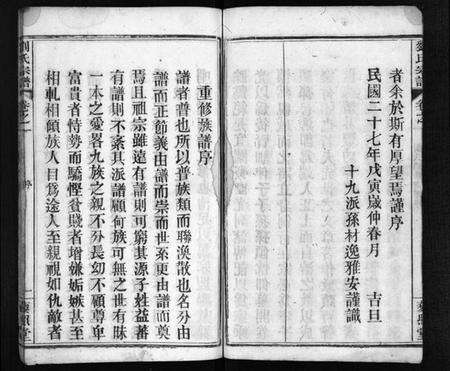 者余於斯有厚望焉謹序
民國二十七年戊寅歲仲春月 吉旦
十九派孫材逸雅安謹識
劉氏宗譜
重修族譜序
譜者普也所以普族類而聯渙散也名分由
譜而正節義由譜而崇而世系更由譜而奠
焉且祖宗雖遠有譜則可窮其源子姓益蕃
有譜則不紊其派譜顧何族可無之世有昧
一本之愛畧九族之親不分長幼不顧尊卑
富貴者恃勢而驕慳貧賤者增嫌妬嫉甚至
相軋相傾族人目為途人至親視如仇敵者
劉氏宗譜
序
一